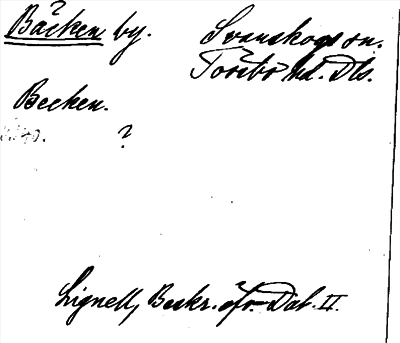 Bäcken by. Svanskogs sn.
Tössbo hd. Dls.
Becken.
?
Lignell, Beskr. öfv. Dal. II.